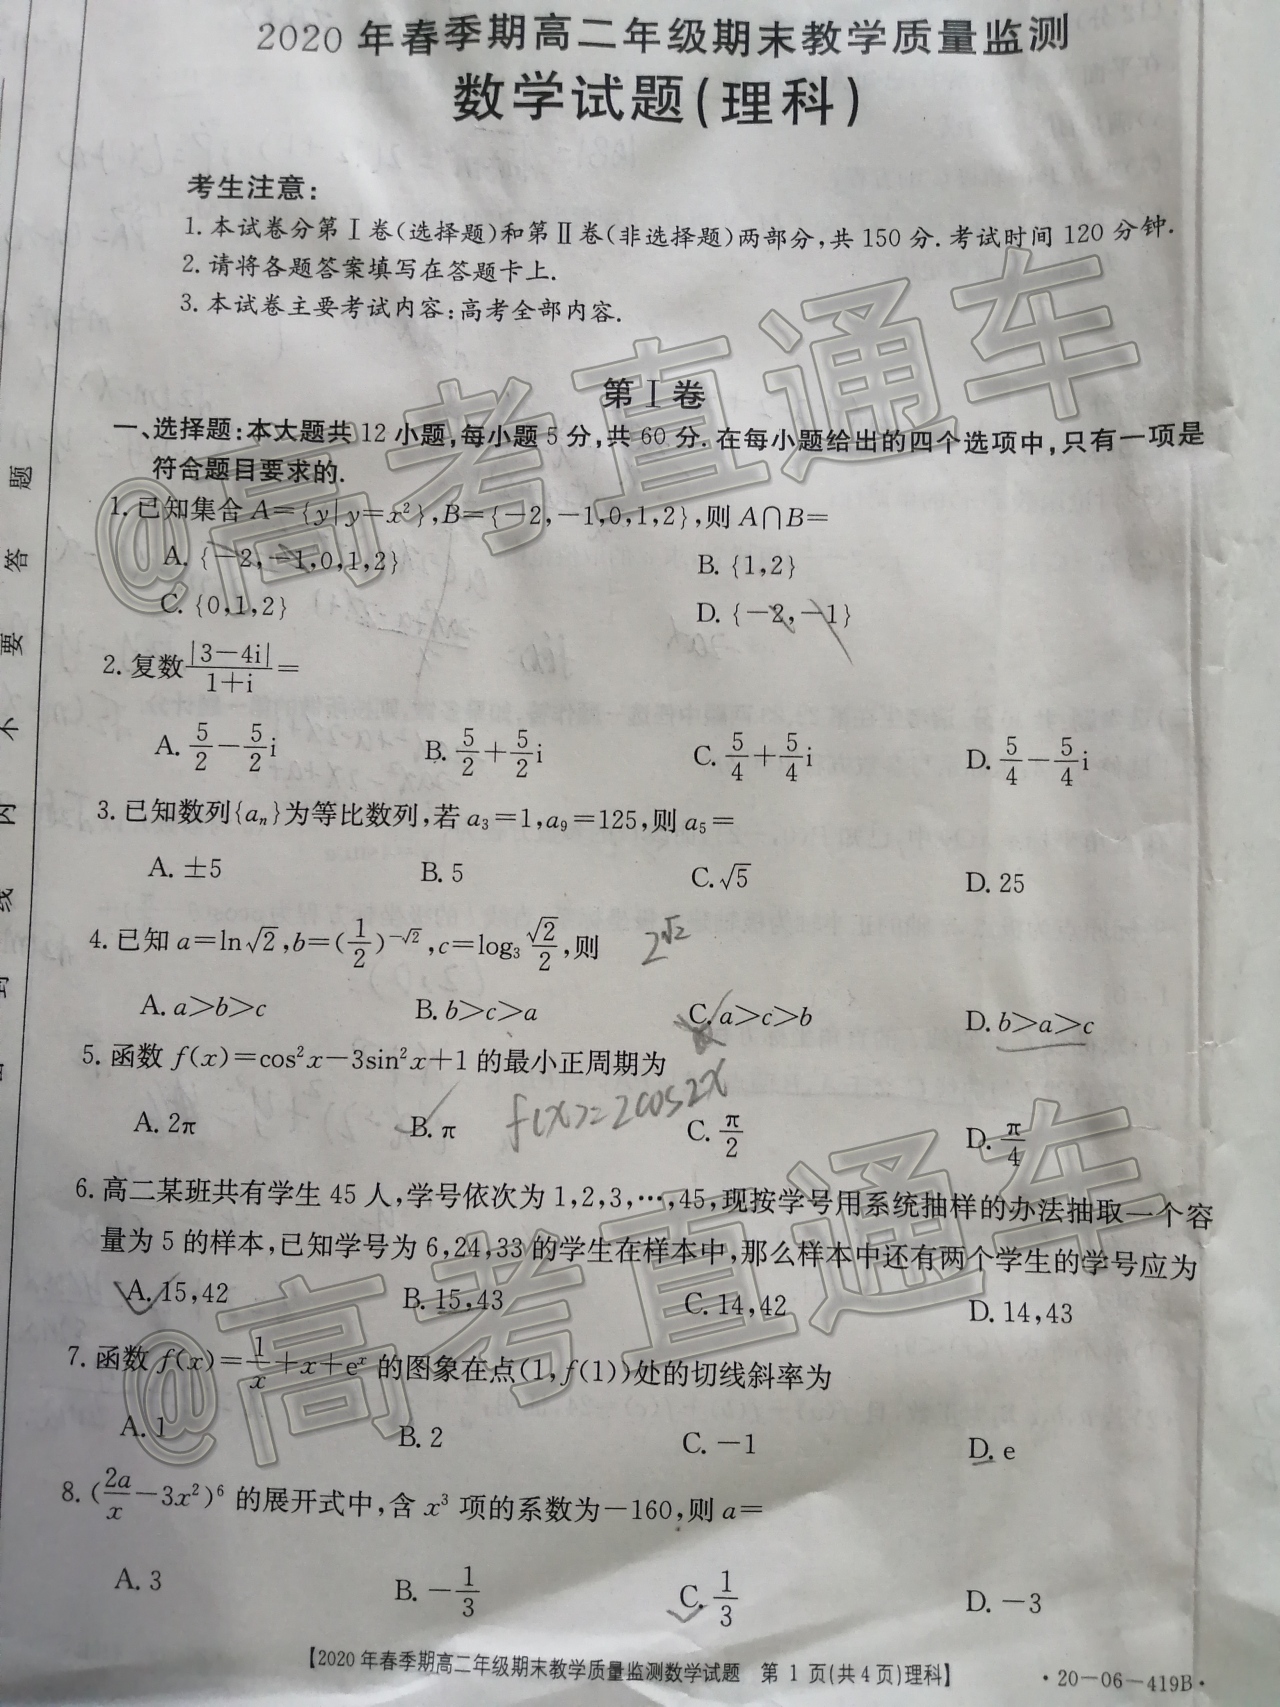 2020年春季期高二年级期末教学质量监测
数学试题(理科)
考生注意:
1.本试卷分第Ⅰ卷(选择题)和第Ⅱ卷(非选择题)两部分,共150分.考试时间120分钟.
2.请将各题答案填写在答题卡上.
3.本试卷主要考试内容:高考全部内容.
第Ⅰ卷
一、选择题:本大题共12小题,每小题5分,共60分.在每小题给出的四个选项中,只有一项是
符合题目要求的.
1.已知集合A={y|y=x²},B={-2,-1,0,1,2},则A∩B=
A.{-2,-1,0,1,2} B.{1,2}
C.{0,1,2} D.{-2,-1}
2.复数|3-4i|/(1+i)=
A.5/2-5/2i B.5/2+5/2i C.5/4+5/4i D.5/4-5/4i
3.已知数列{aₙ}为等比数列,若a₃=1,a₉=125,则a₅=
A.±5 B.5 C.√5 D.25
4.已知a=ln√2,b=(1/2)^(-√2),c=log₃ √2/2,则 2^√2
A.a>b>c B.b>c>a C.a>c>b D.b>a>c
5.函数f(x)=cos²x-3sin²x+1的最小正周期为
f(x)=2cos2x
A.2π B.π C.π/2 D.π/4
6.高二某班共有学生45人,学号依次为1,2,3,…,45,现按学号用系统抽样的办法抽取一个容
量为5的样本,已知学号为6,24,33的学生在样本中,那么样本中还有两个学生的学号应为
A.15,42 B.15,43 C.14,42 D.14,43
7.函数f(x)=1/x+x+eˣ的图象在点(1,f(1))处的切线斜率为
A.1 B.2 C.-1 D.e
8.(2a/x-3x²)⁶的展开式中,含x³项的系数为-160,则a=
A.3 B.-1/3 C.1/3 D.-3
【2020年春季期高二年级期末教学质量监测数学试题 第1页(共4页)理科】
·20-06-419B·
题
答
要
不
内
线
封
@高考直通车
@高考直通车